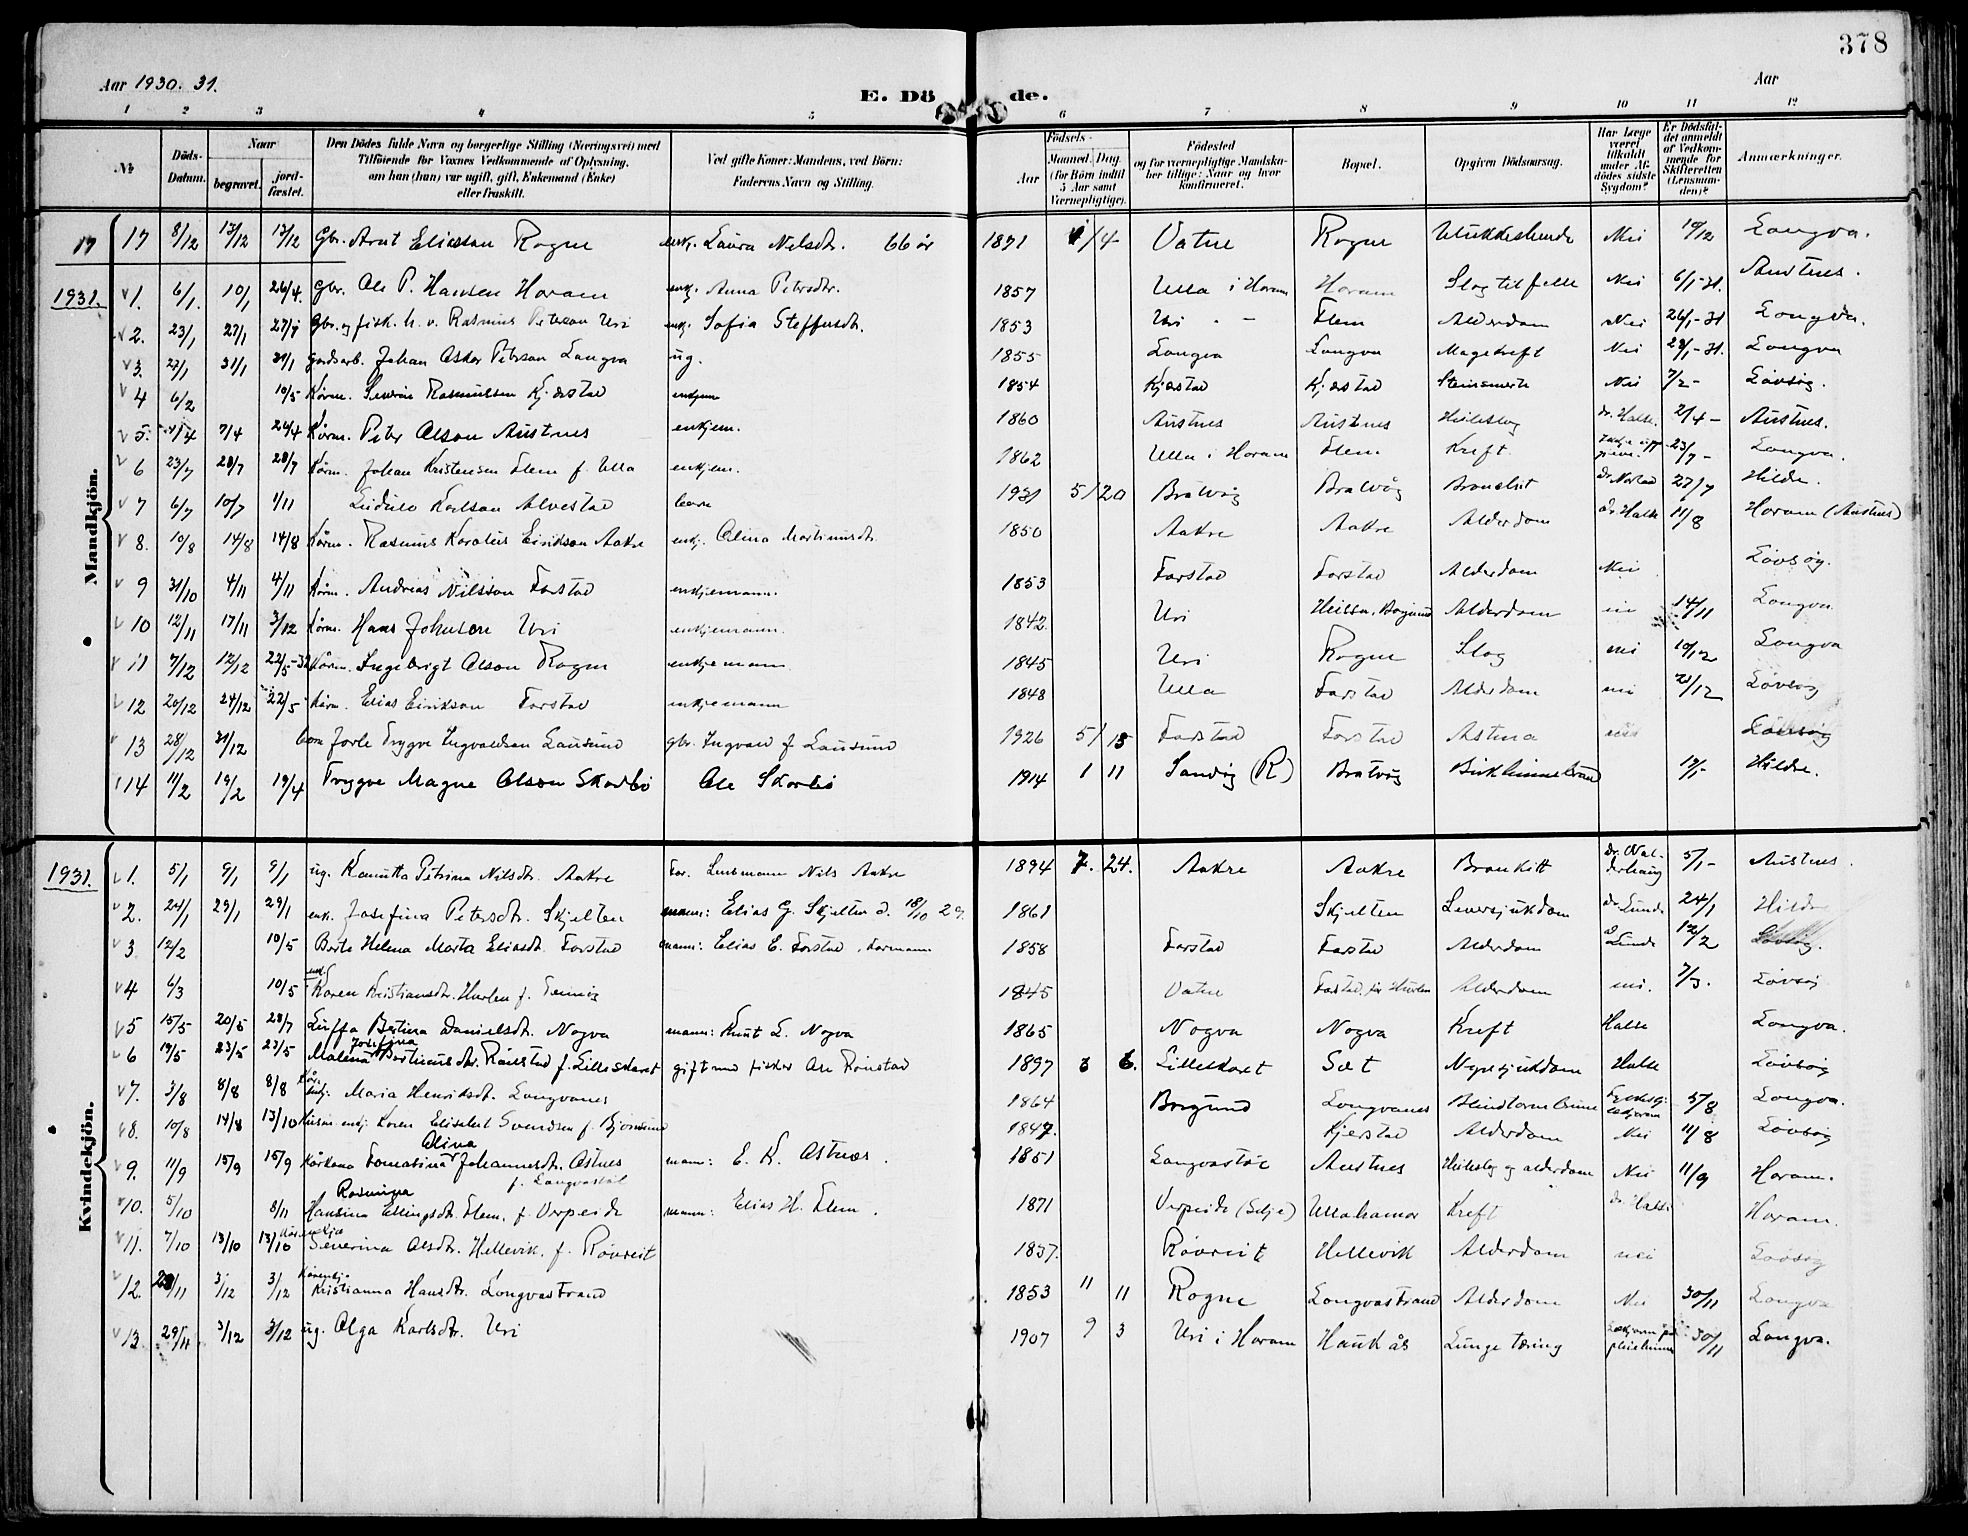 378
Aar 1930. 31.
E. Dö de.
Aar
1 2 3 4 5 6 7 8 9 10 11 12
No.
Döds-Datum.
Naar
begravet.
jord-fæstet.
Den Dödes fulde Navn og borgerlige Stilling (Næringsvei) med
Tilföiende for Voxnes Vedkommende af Oplysning,
om han (hun) var ugift, gift, Enkemand (Enke)
eller fraskilt.
Ved gifte Koner: Mandens, ved Börn:
Faderens Navn og Stilling.
Födsels-
Aar
Maaned. Dag.
(for Börn indtil
5 Aar samt
Værnepligtige).
Födested
og for værnepligtige Mandska-
ber tillige: Naar og hvor
konfirmeret.
Bopæl.
Opgiven Dödsaarsag.
Har Læge
været
tilkaldt
under Af-
dödes sidste
Sygdom?
Er Dödsfal-
det anmeldt
af Vedkom-
mende for
Skifteretten
(Lensman-
den)?
Anmærkninger.
Mandkjön.
17 17 8/12 13/12 13/12 Gbr. Arnt Eliassen Rogne enkj. Laura Nilsdtr. 66 år 1871 4 Vatne Rogne Ulukkeshende Nei 10/12 Longva.
1931. 1. 6/1 10/1 26/4 Gbr. Ole P. Hansen Haram enkj. Anna Petersdtr. 1857 Ulla i Haram Haram Slagtilfelle Nei 6/1-31. Austnes.
2. 23/1 27/1 27/1 Gbr. og fisk. Rasmus Peterson Uri enkj. Sofia Steffensdtr. 1853 Uri - Flem Alderdom Nei 26/1-31 Longva.
3. 27/1 31/1 31/1 Gardsarb. Johan Oskar Peterson Longva ug. 1855 Longva Longva Magekreft Nei 28/1-31. Longva
4 6/2 10/5 Kårm. Severin Rasmussen Kjerstad enkjem 1854 Kjerstad Kjerstad Nei 7/2- Lövsöy.
5. 7/4 26/4 Kårm. Peter Olson Austnes enkjem. 1860 Austnes Austnes Hjerteslag dr. Halse. 2/4- Austnes.
6 23/7 28/7 28/7 Kårm. Johan Kristensen Flem f. Ulla enkjem. 1862 Ulla i Haram Flem Kreft 23/7- Longva.
7 6/7 10/7 1/11 Karlson Alvestad barn 1931 5/20 Bratvåg Bratvåg Bronchit 27/7 Hildre.
8. 10/8 14/8 14/8 Kårm. Rasmus Karolus Eirikson Aakre enkj. Olina Martinusdtr. 1850 Aakre Aakre Alderdom dr. Halse 11/8 Haram (Austnes)
9 31/10 4/11 4/11 Kårm. Andreas Nilsson Farstad enkjemann. 1853 Farstad Farstad Alderdom Nei Lövsöy.
10 12/11 17/11 3/12 Kårm. Hans Johnsen Uri enkjemann. 1842. Uri Borgund Alderdom 14/11 Longva.
11 7/12 12/12 22/5-32 Kårm. Ingebrigt Olson Rogne enkjemann 1845 Uri Rogne Slag nei 10/12 Longva
12 20/12 24/12 22/5 Kårm. Elias Eirikson Farstad enkjemann 1848 Ulla Farstad Alderdom nei 21/12 Lövsöy
13 28/12 31/12 barn Jarle Trygve Ingvaldson Gausund gbr. Ingvald f. Gausund 1926 5/15 Farstad Farstad Astma nei Lövsöy
14 11/2 19/2 19/4 Trygve Magne Olson Skarbö Ole Skarbö 1914 1 11 Sandöy (R) Bratvåg 12/1- Hildre.
Kvindekjön.
1931. 1. 5/1 9/1 9/1 ug. Kamitta Petrina Nilsdtr. Aakre Far. Lensmann Nils Aakre 1894 7. 24. Aakre Aakre Bronkitt Dr. Walderhaug 5/1- Austnes.
2. 24/1 29/1 29/1 enk. Josefina Petersdtr. Skjelten mann: Elias G. Skjelten d. 18/10 29. 1861 Skjelten Leversjukdom dr. Lunde 24/1 Hildre
3 12/2 10/5 Berte Helena Marta Eliasdtr. Farstad mann: Elias E. Farstad, kårmann 1858 Farstad Farstad Alderdom Lunde 12/2 Lövsöy.
4 6/3 10/5 enk. Karen Kristiansdtr. Hurlen f. Tennöy 1845 Vatne Farstad, för Hurlen Alderdom nei. 7/3. Lövsöy
5 15/5 20/5 28/7 Bertina Danielsdtr. Nogva mann: Knut L. Nogva 1865 Nogva Nogva Kreft Halse Longva.
6 19/5 23/5 23/5 Malena Josefina Bertinusdtr. Rönstad f. Lilleskaret gift med fisker Ole Rönstad 1897 3 6. Lilleskaret Sæt Nyresjukdom Halse Lövsöy
7. 3/8 8/8 8/8 Kår. enkj. Maria Henriksdtr. Longvanes 1864 Borgund Longvanes 5/8 Longva.
8. 10/8 14/8 13/10 enkj. Karen Elisebet Svendsen f. Björnsund 1847. Kjerstad Alderdom Nei 11/8 Lövsöy
9. 11/9 15/9 15/9 Kårkona Tomasina Olina Johannesdtr. Astnes f. Longvastöl mann: E. K. Astnes. 1851 Longvastöl Austnes Hjerteslag og alderdom Nei 11/9 Haram.
10. 5/10 8/11 Hansina Rasmina Ellingsdtr. Flem. f. Verpeide mann: Elias H. Flem. 1871 Verpeide (Selje) Ullahamar Kreft dr. Halse Haram.
11. 7/10 13/10 13/10 Kårenkja Severina Olsdtr. Hellevik. f. Rövreit 1837. Rövreit Hellevik Alderdom nei Lövsöy
12. 28/11 3/12 3/12 Kårenkja Kristianna Hansdtr. Longvastrand 1853 11 11 Rogne Longvastrand Alderdom Nei 30/11 Longva
13. 29/11 3/12 3/12 ug. Olga Karlsdtr. Uri 1907 9 3 Uri i Haram Haukås Lungetæring 30/11 Longva.